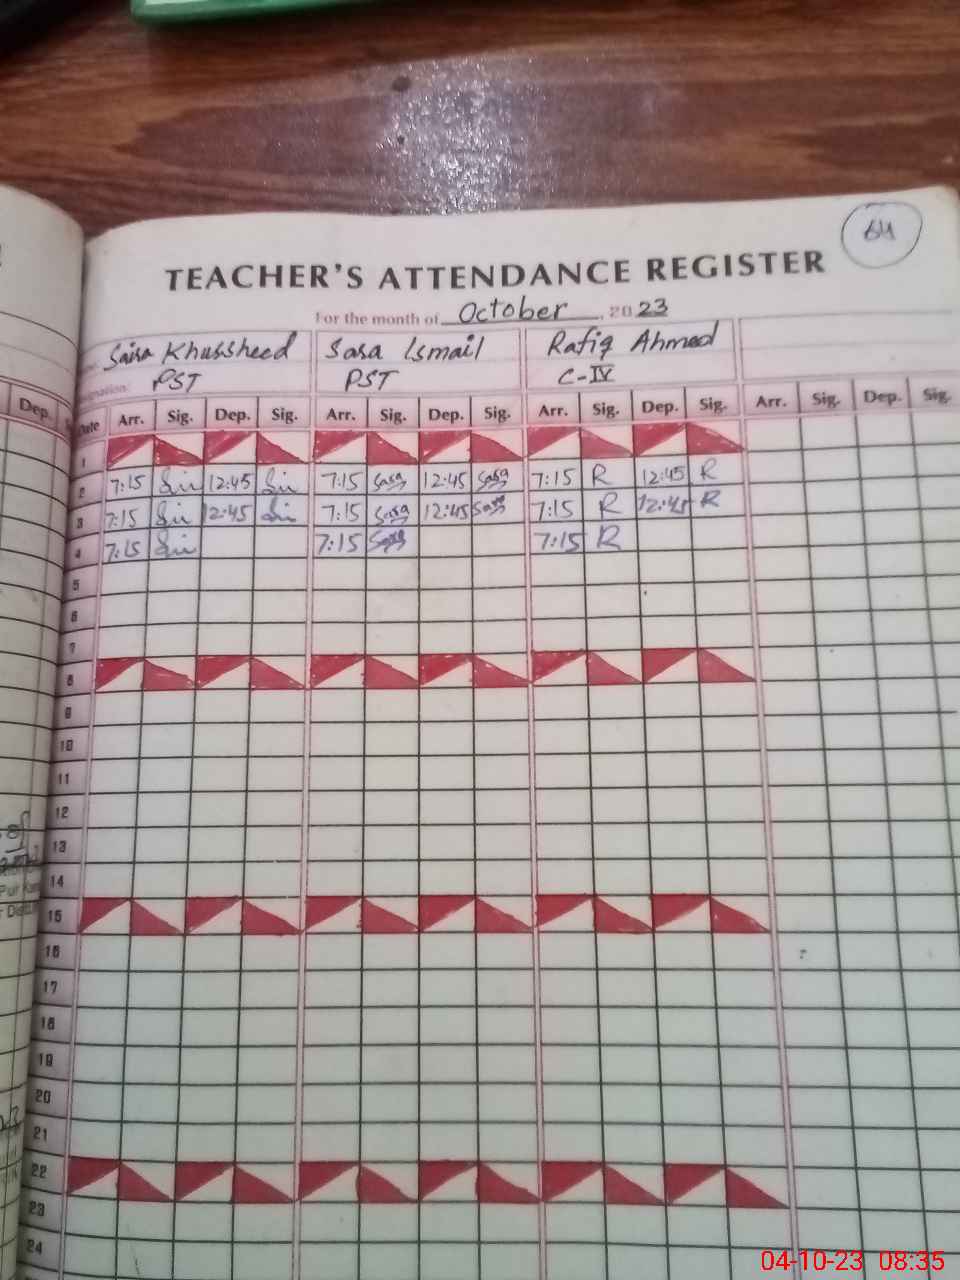 64
TEACHER'S ATTENDANCE REGISTER
For the month of October, 2023
Saira Khursheed Sara Ismail Rafiq Ahmed
PST PST C-IV
Dep. Date Arr. Sig. Dep. Sig. Arr. Sig. Dep. Sig. Arr. Sig. Dep. Sig. Arr. Sig. Dep. Sig.
1
2 7:15 12:45 7:15 Sara 12:45 Sara 7:15 R 12:45 R
3 7:15 12:45 7:15 Sara 12:45 Sara 7:15 R 12:45 R
4 7:15 7:15 Sara 7:15 R
5
6
7
8
9
10
11
12
13
14
15
16
17
18
19
20
21
22
23
24
04-10-23 08:35